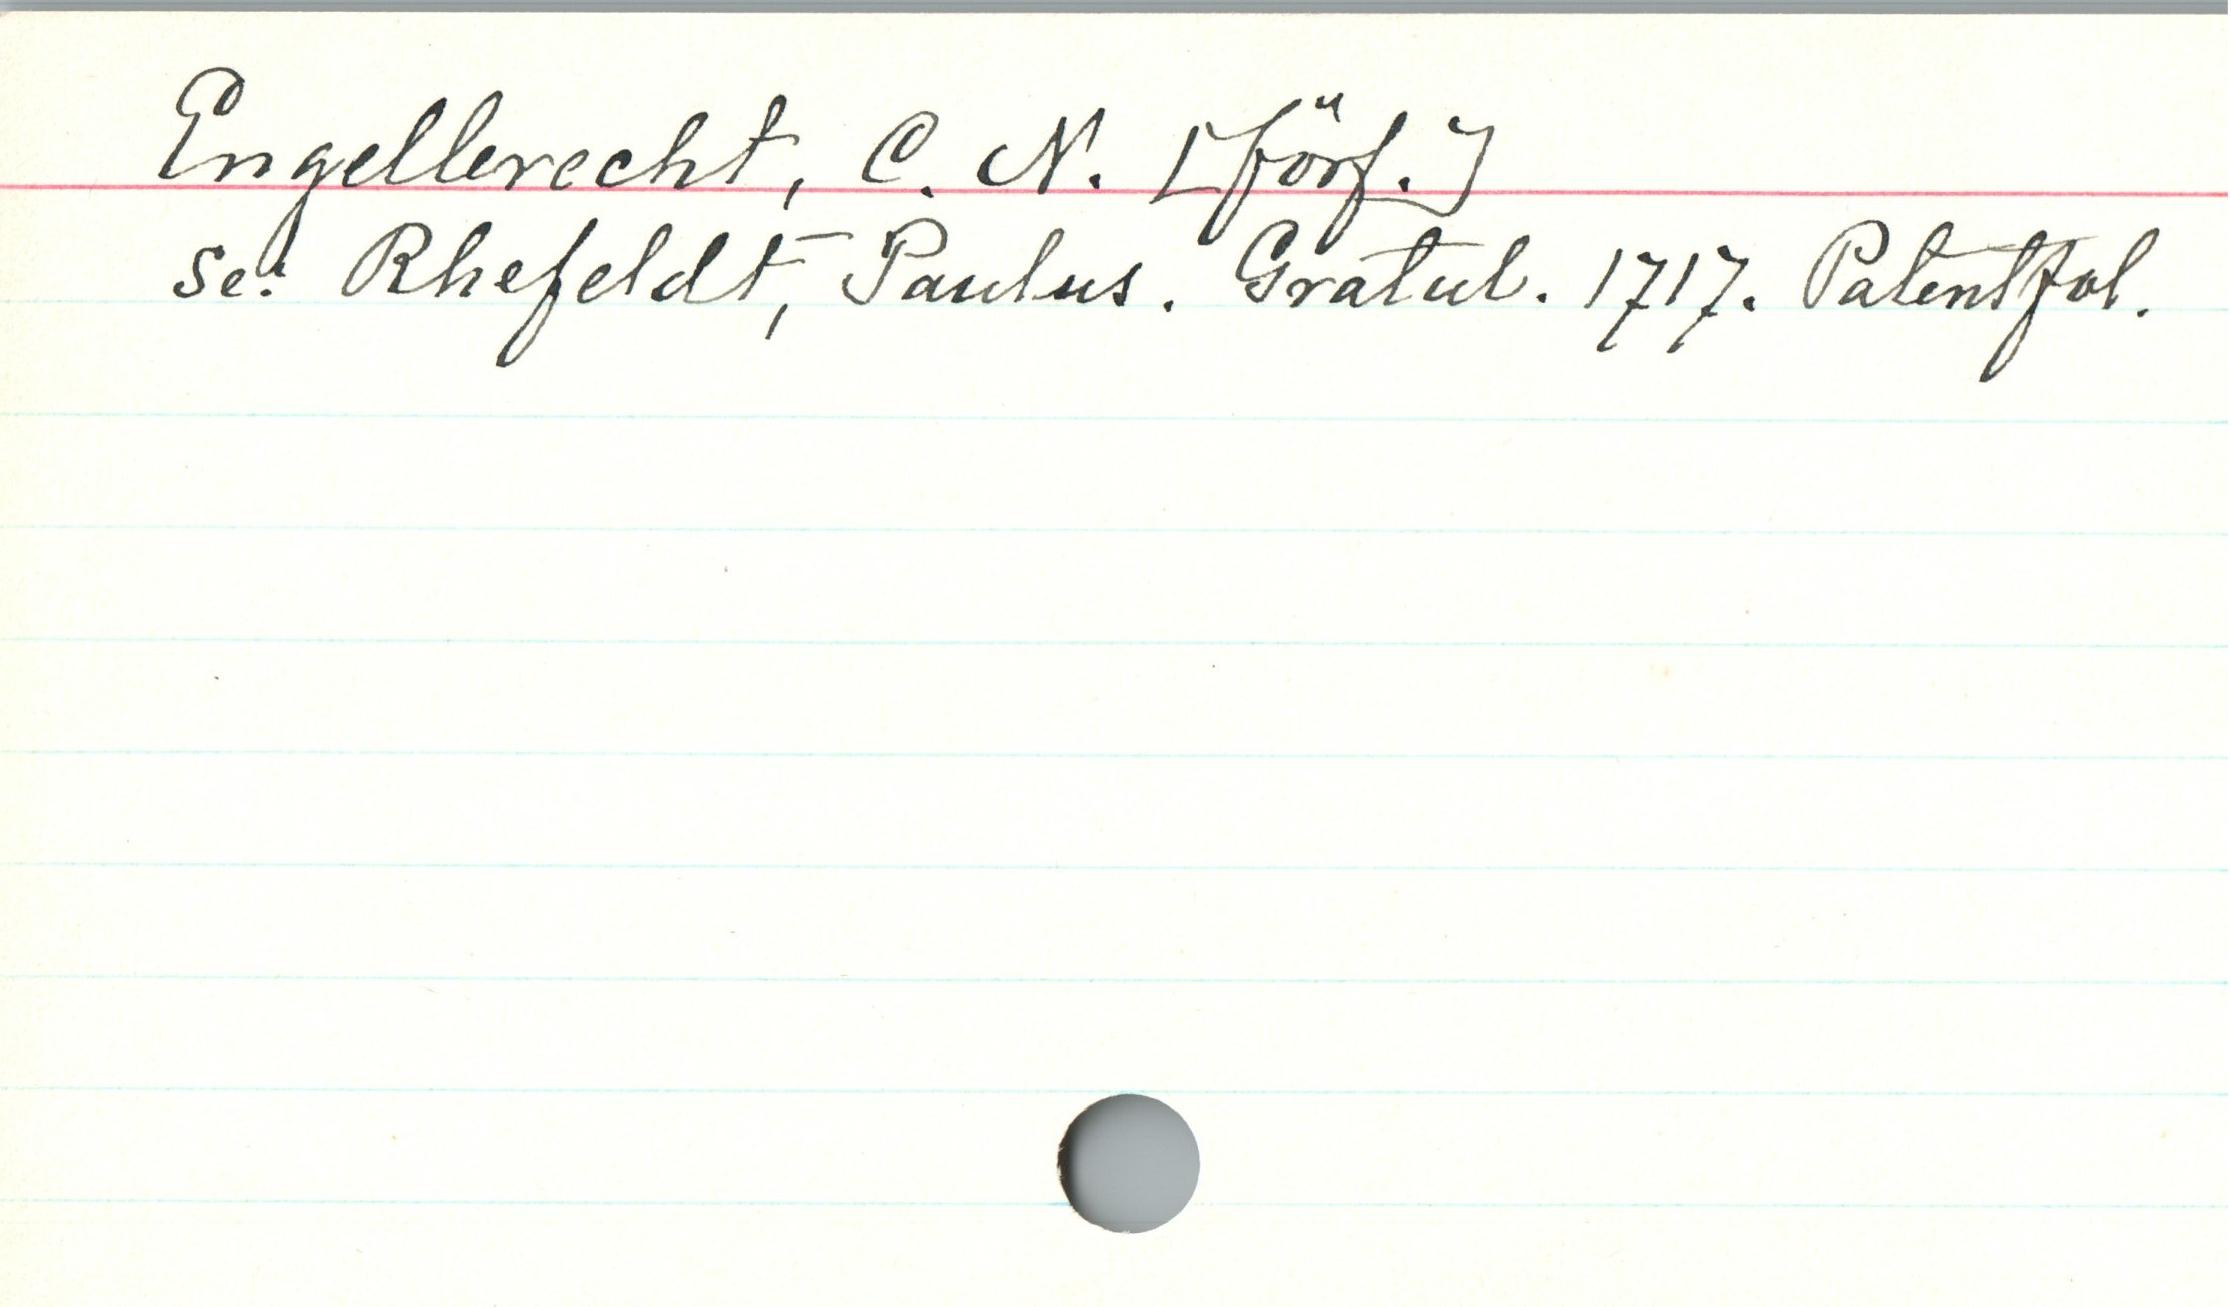 Engellerecht, C. N. [förf.]
se: Rhefeldt, Paulus. Gratul. 1717. Patentfol.